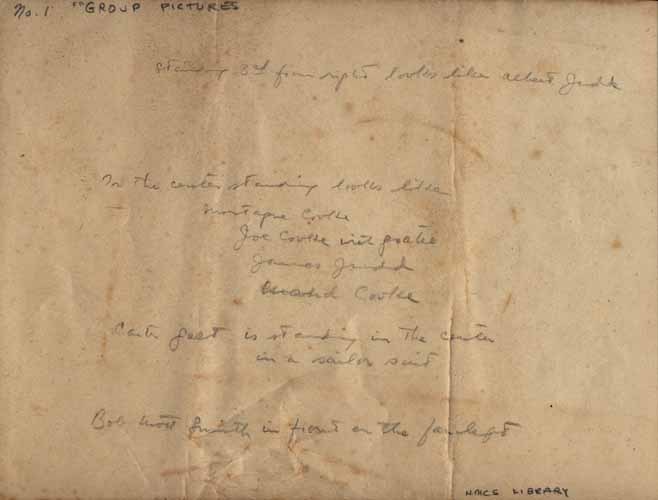 No. 1 "GROUP PICTURES
standing 3rd from right looks like Albert Judd
In the center standing looks like
Montague Cooke
Joe Cooke with goatee
James Judd
Cooke
is standing in the center
in a sailor suit
Bob Mott Smith in front on the far left
HMCS LIBRARY